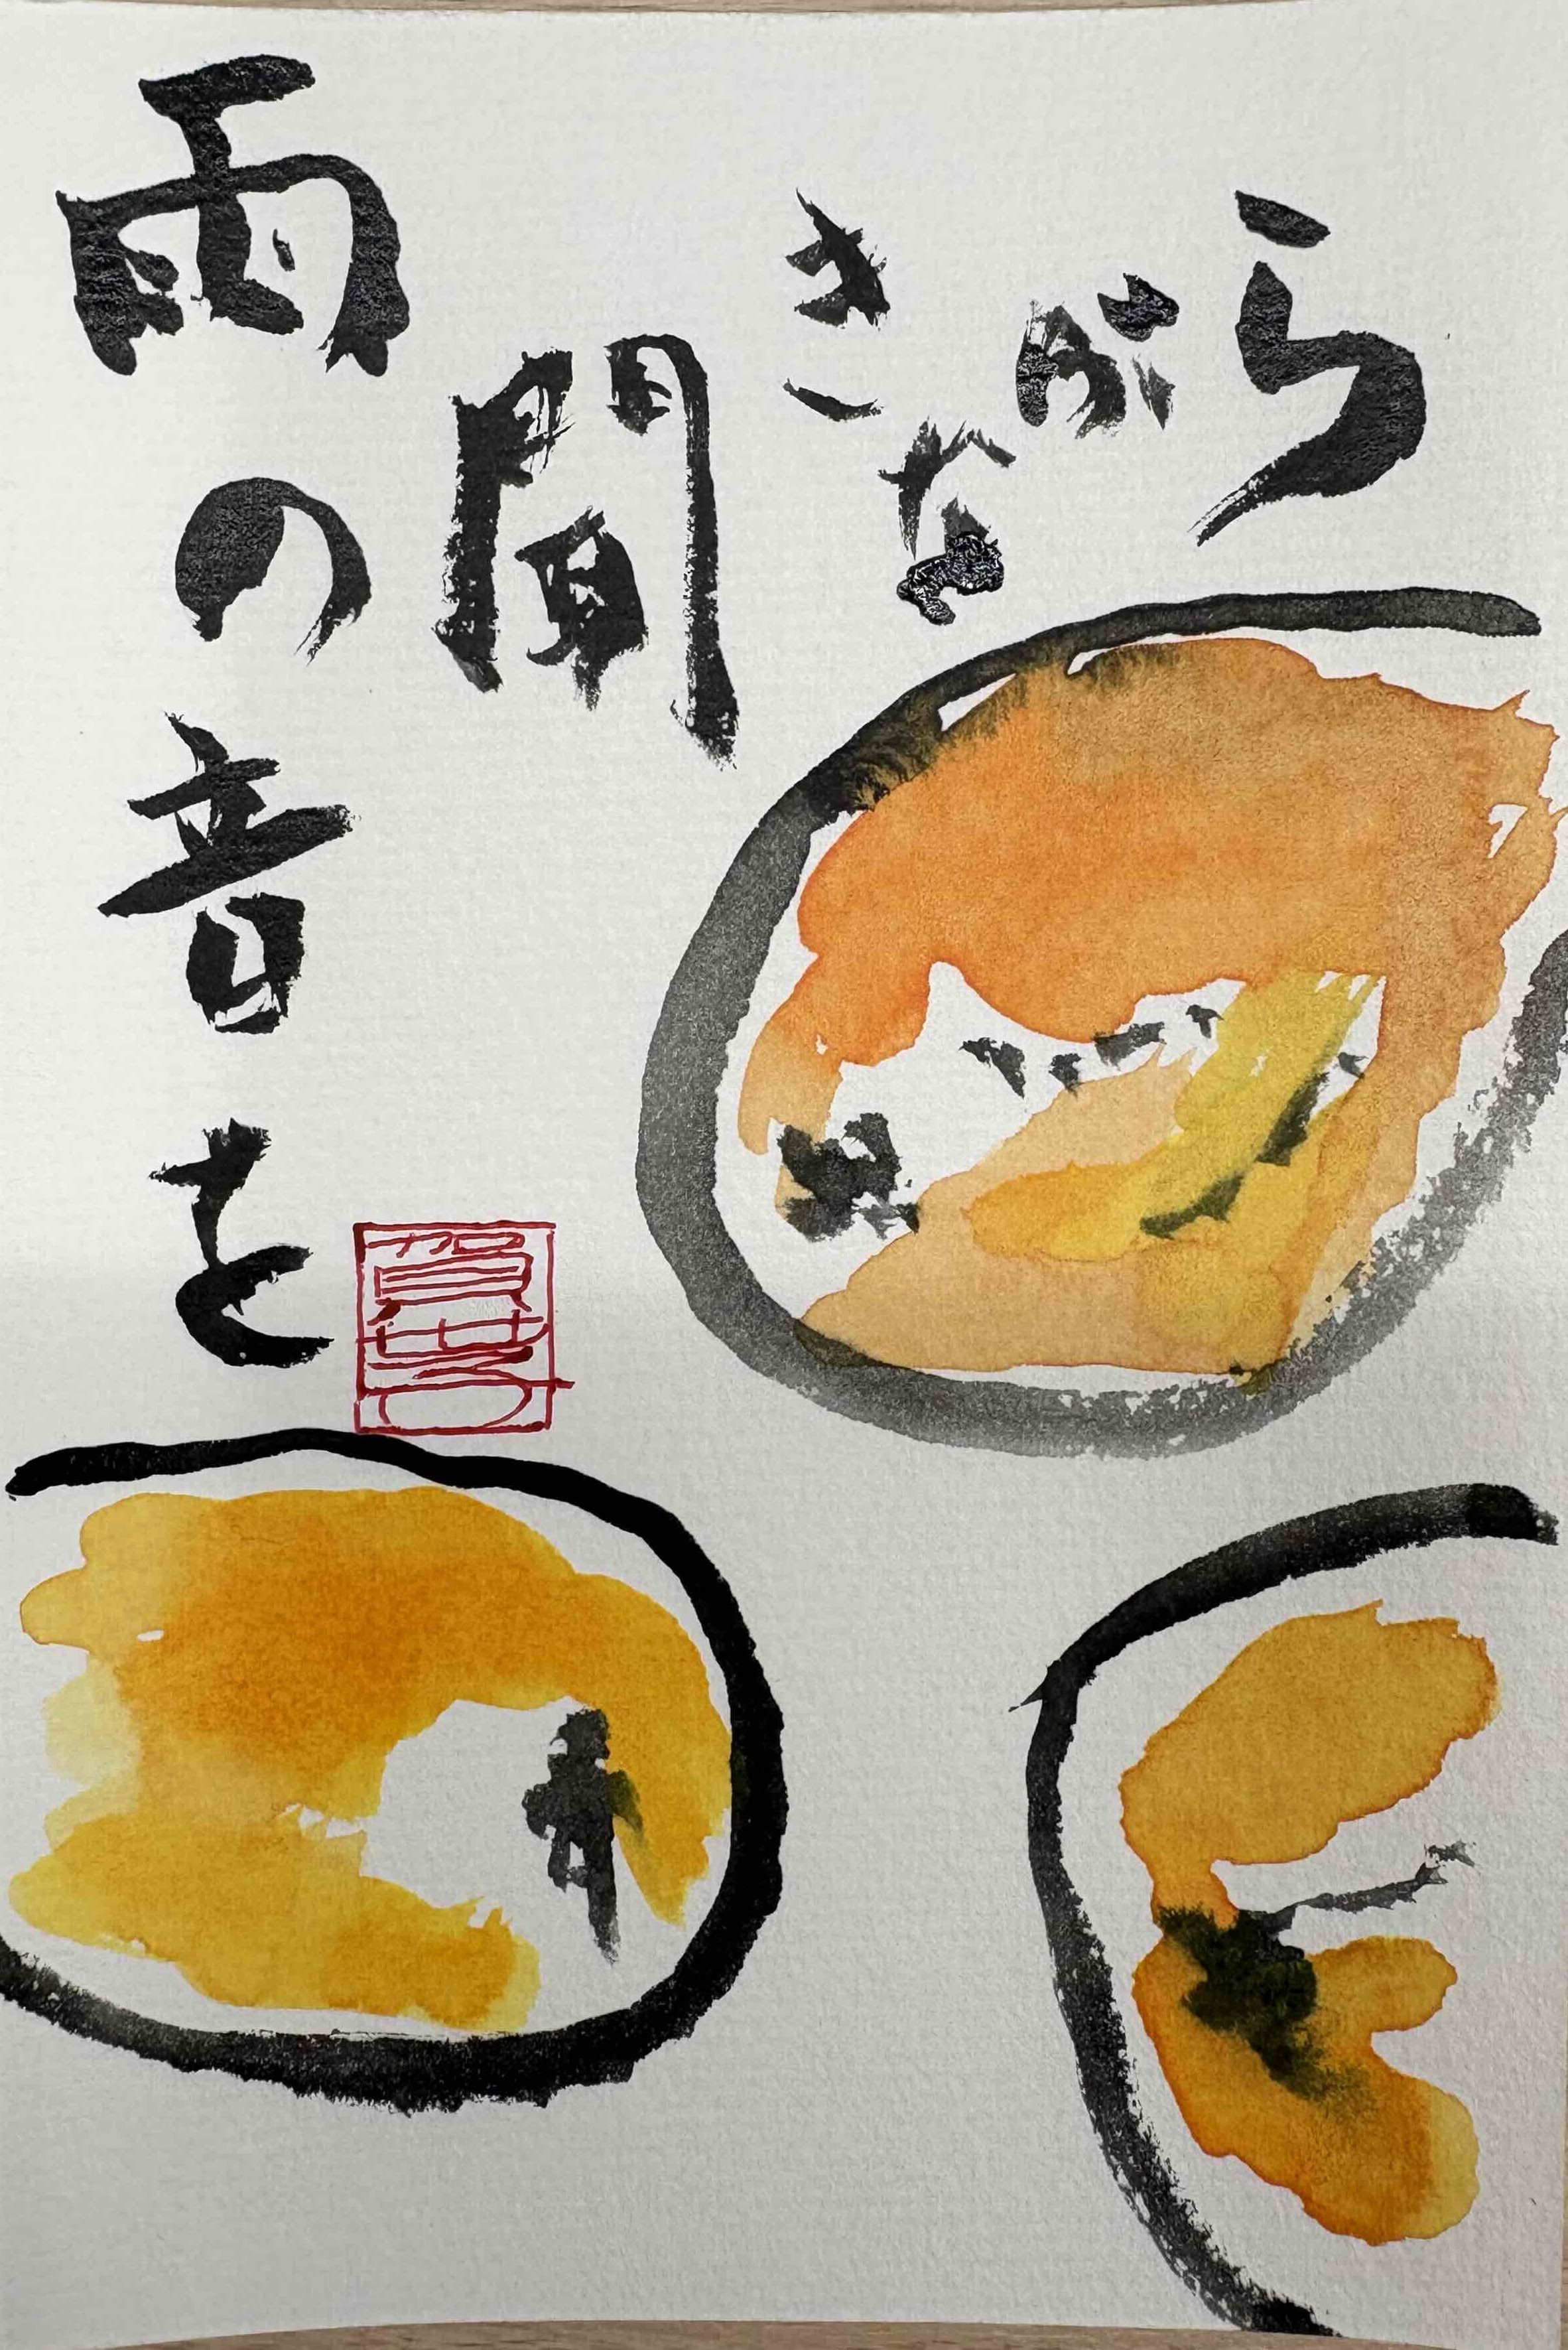 雨の音を
聞きながら